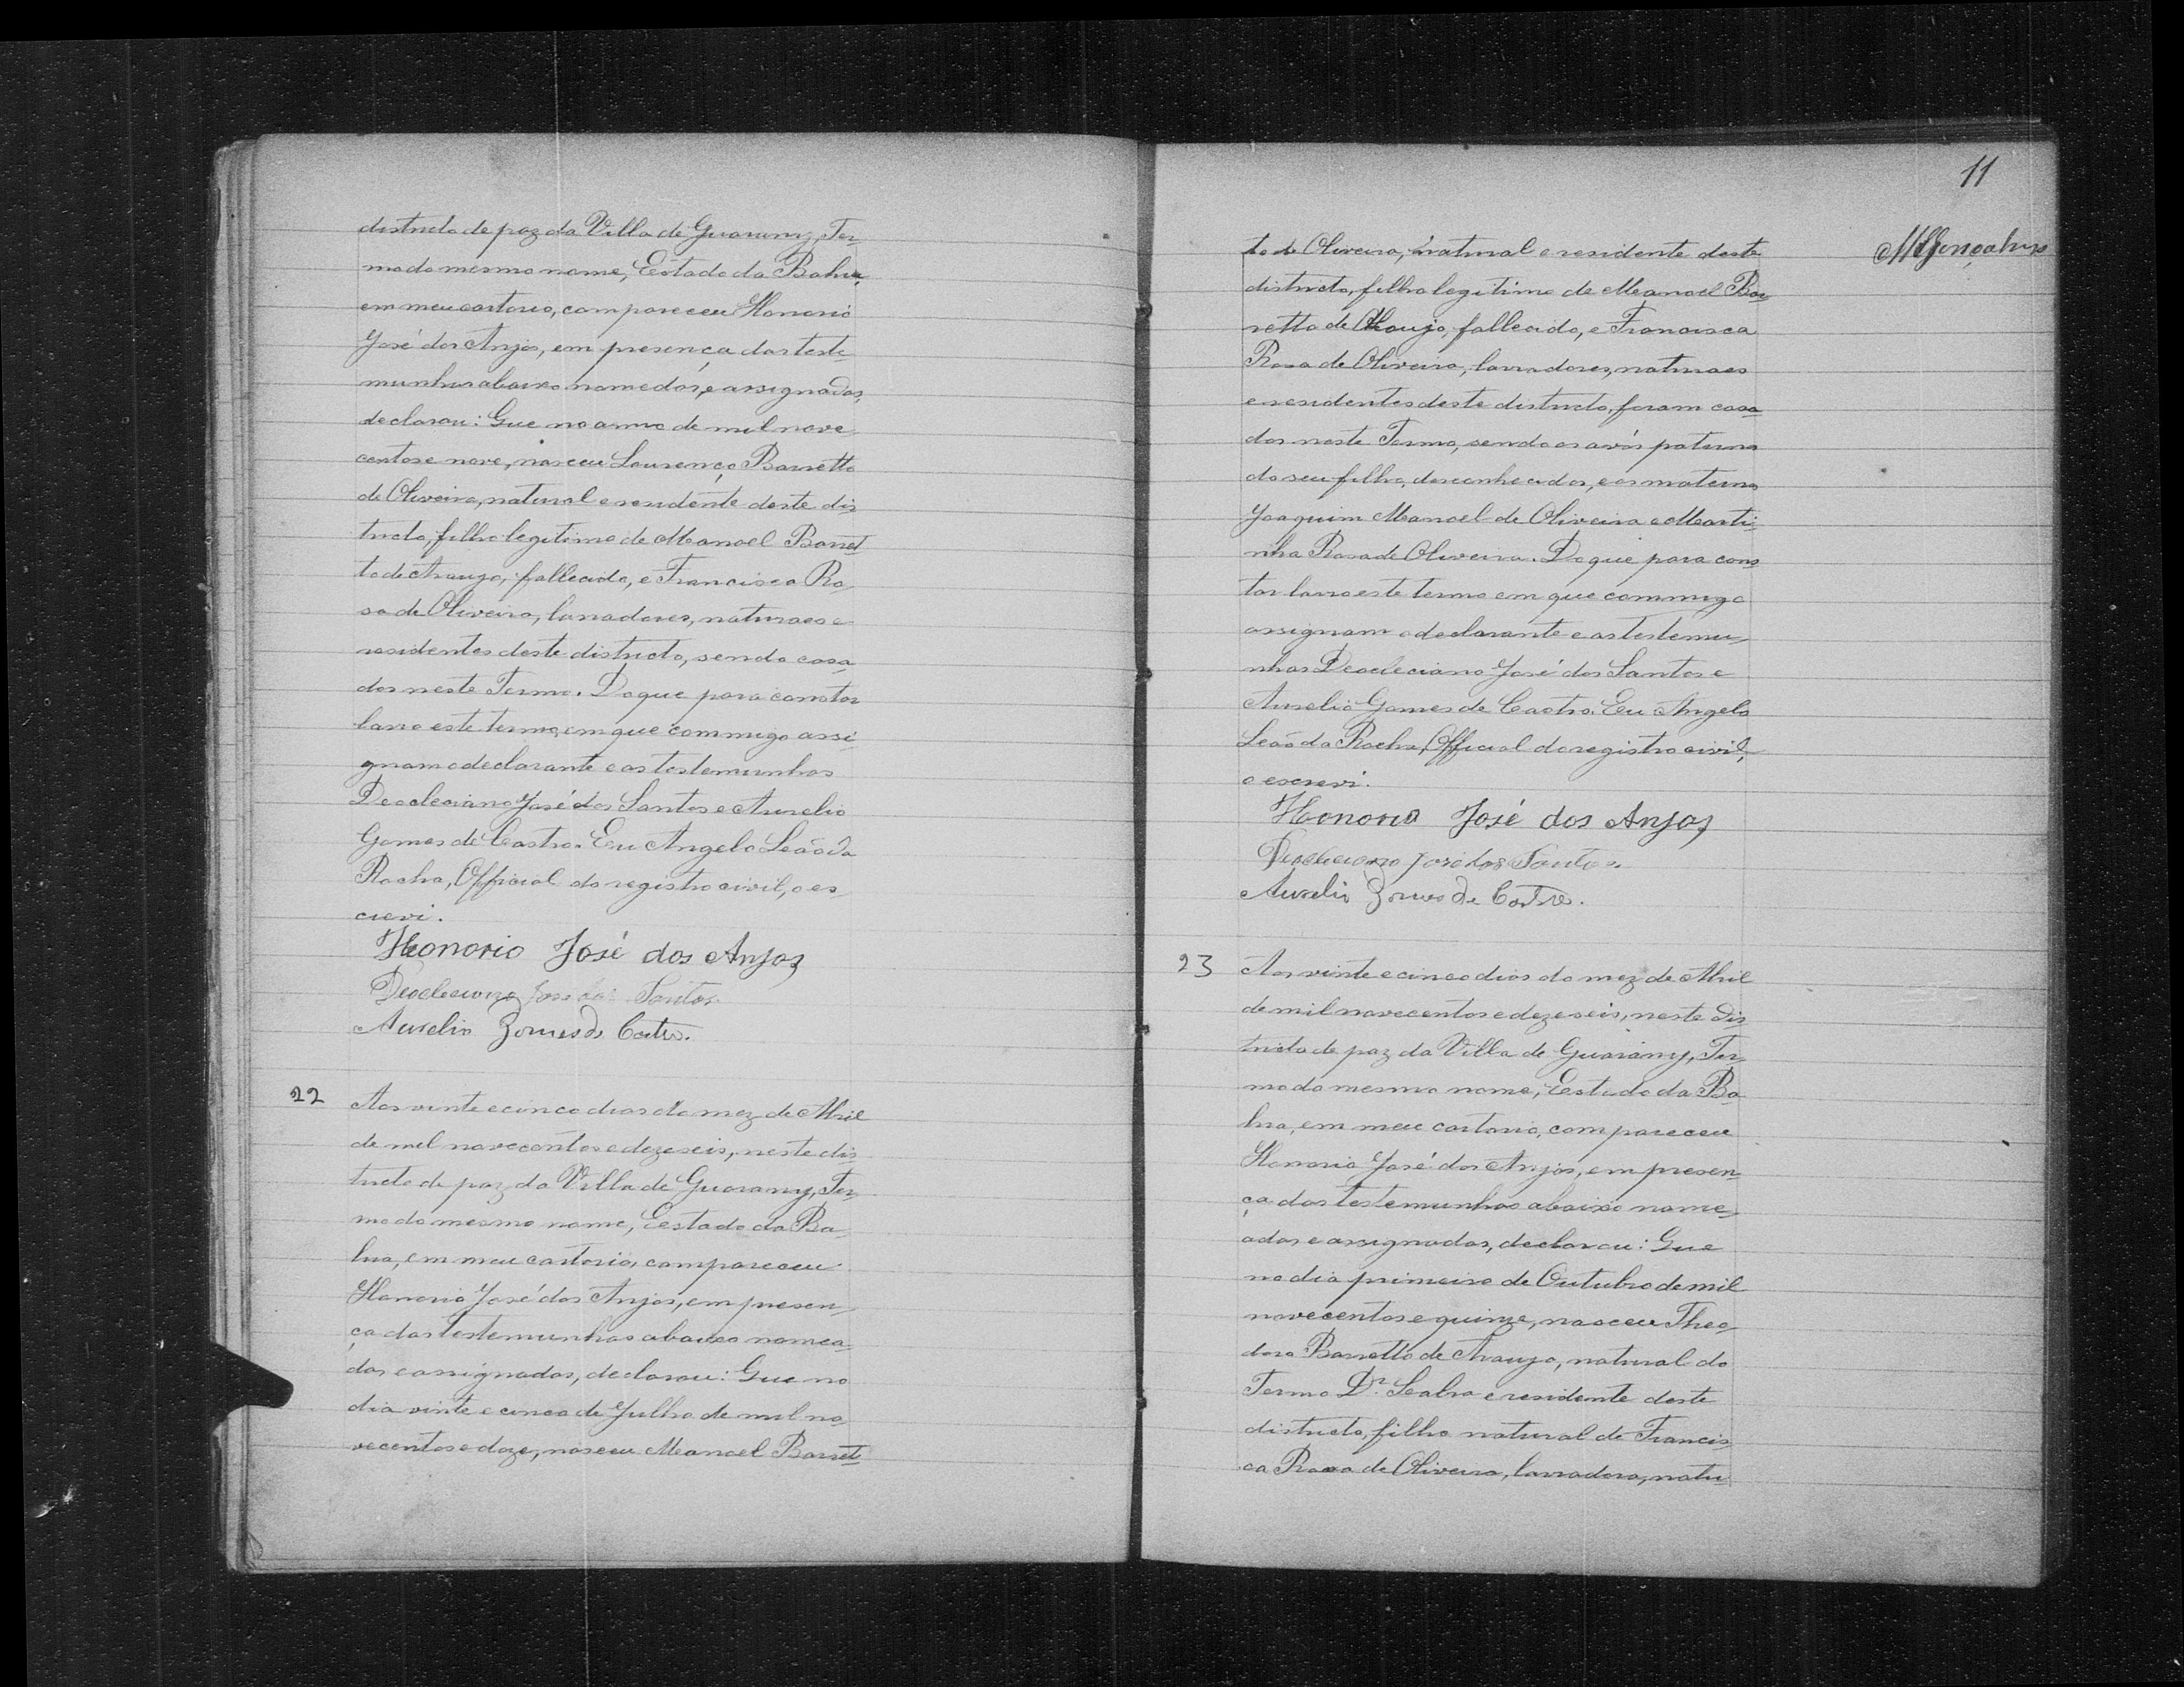 districto de paz da Villa de Guarany, Ter-
mo do mesmo nome, Estado da Bahia,
em meu cartorio, compareceu Honorio
José dos Anjos, em presença das teste-
munhas abaixo nomedas, e assignadas,
declarou: Que no anno de mil nove-
centos e nove, nasceu Lourenço Barretto
de Oliveira, natural e residente deste dis-
tricto, filho legitimo de Manoel Barret-
to de Araujo, fallecido, e Francisca Ro-
sa de Oliveira, lavradores, naturaes e
residentes deste districto, sendo casa-
dos neste Termo. Do que para constar
lavro este termo, em que commigo assi-
gnam o declarante e as testemunhas
Deocleciano José dos Santos e Aurelio
Gomes de Castro. Eu Angelo Leão da
Rocha, Official do registro civil, o es-
crevi.
Honorio José dos Anjos
Deocleciano José dos Santos.
Aurelio Gomes de Castro.
22 Aos vinte e cinco dias do mez de Abril
de mil novecentos e dezeseis, neste dis-
tricto de paz da Villa de Guarany, Ter-
mo do mesmo nome, Eestado da Ba-
hia, em meu cartorio, compareceu
Honorio José dos Anjos, em presen-
ça das testemunhas abaixo nomea-
das e assignadas, declarou: Que no
dia vinte e cinco de Julho de mil no-
vecentos e doze, nasceu Manoel Barret-
11
to de Oliveira, natural e residente deste
MGonçalves
districto, filho legitimo de Manoel Bar-
retto de Araujo, fallecido, e Francisca
Rosa de Oliveira, lavradores, naturaes
e residentes deste districto, foram casa-
dos neste Termo, sendo os avós paternos
do seu filho, desconhecidos, e os maternos
Joaquim Manoel de Oliveira e Marti-
nha Rosa de Oliveira. Do que para cons-
tar lavro este termo em que commigo
assignam o declarante e as testemu-
nhas Deocleciano José dos Santos e
Aurelio Gomes de Castro. Eu Angelo
Leão da Rocha, Official do registro civil,
o escrevi.
Honorio José dos Anjos
Deocleciano José dos Santos.
Aurelio Gomes de Castro.
23 Aos vinte e cinco dias do mez de Abril
de mil novecentos e dezeseis, neste dis-
tricto de paz da Villa de Guarany, Ter-
mo do mesmo nome, Eestado da Ba-
hia, em meu cartorio, compareceu
Honorio José dos Anjos, em presen-
ça das testemunhas abaixo nome-
adas e assignadas, declarou: Que
no dia primeiro de Outubro de mil
novecentos e quinze, nasceu Theo-
doro Barretto de Araujo, natural do
Termo Dr. Seabra e residente deste
districto, filho natural de Francis-
ca Rosa de Oliveira, lavradora, natu-